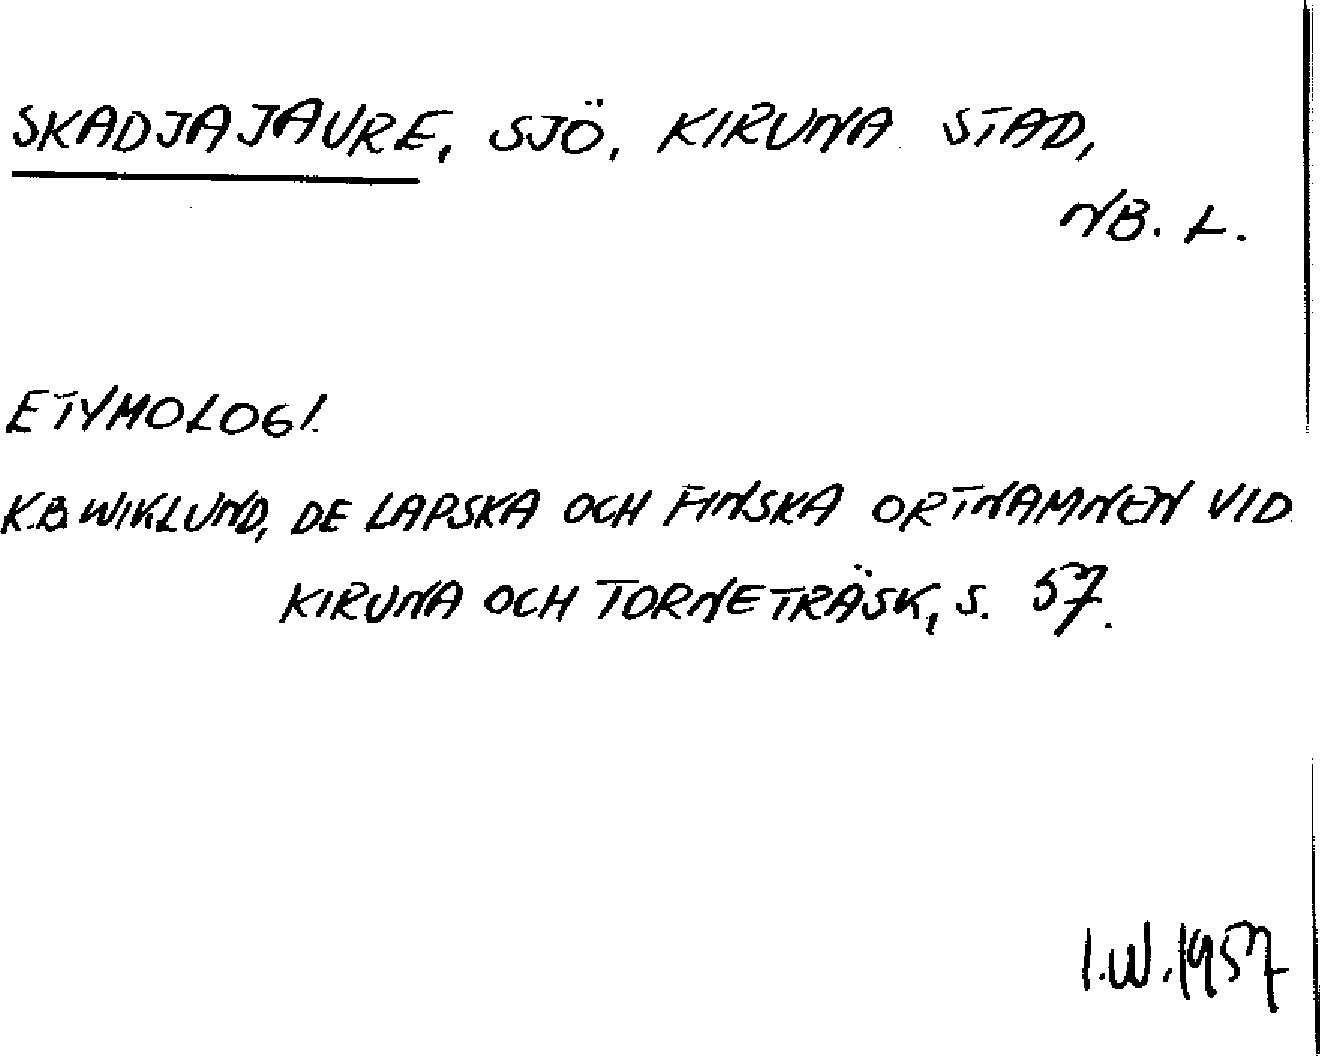 SKADJAJAURE, SJÖ, KIRUNA STAD,
NB. L.
ETYMOLOGI.
K.B WIKLUND, DE LAPSKA OCH FINSKA ORTNAMNEN VID
KIRUNA OCH TORNETRÄSK, S. 57.
I.W. 1957